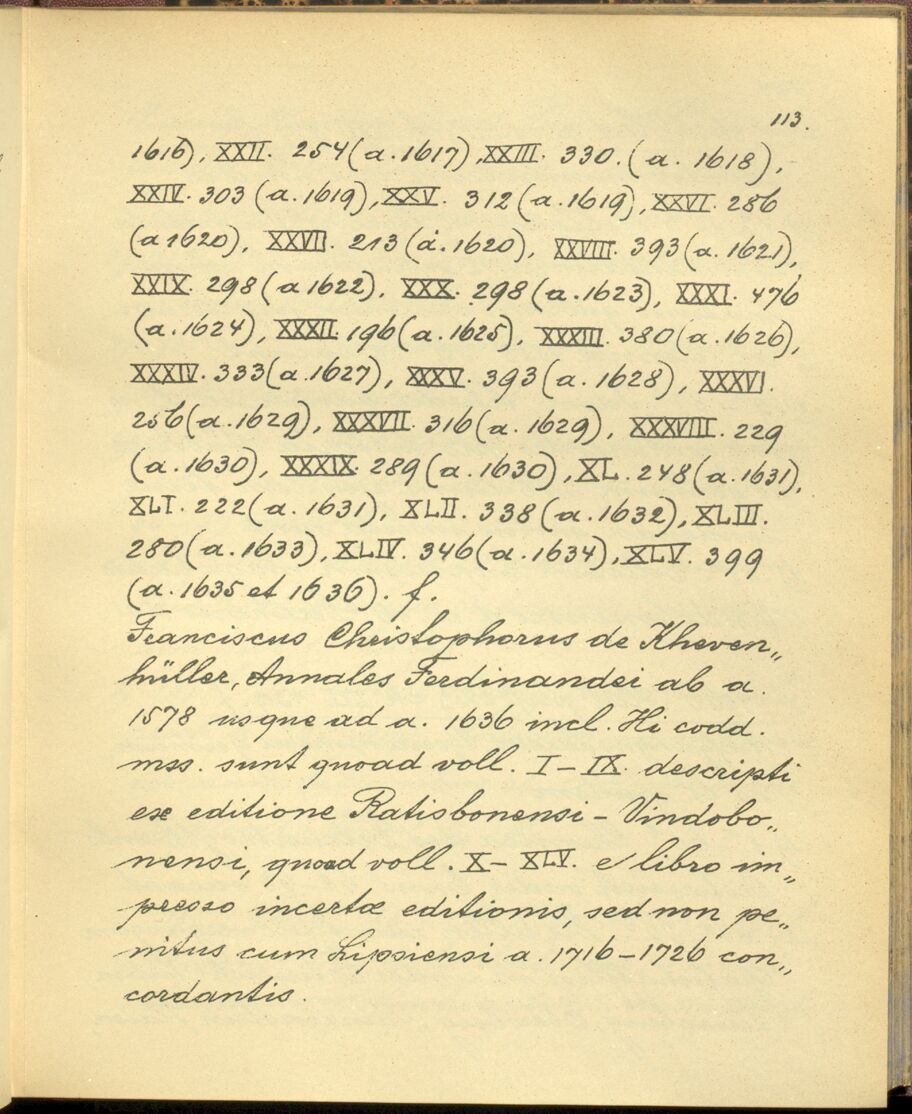 113.
1616), XXII. 254 (a. 1617), XXIII. 330. (a. 1618),
XXIV. 303 (a. 1619), XXV. 312 (a. 1619), XXVI. 286
(a 1620), XXVII. 213 (a. 1620), XXVIII. 393 (a. 1621),
XXIX. 298 (a 1622), XXX. 298 (a. 1623), XXXI. 476
(a. 1624), XXXII. 196 (a. 1625), XXXIII. 380 (a. 1626),
XXXIV. 333 (a. 1627), XXXV. 393 (a. 1628), XXXVI.
256 (a. 1629), XXXVII. 316 (a. 1629), XXXVIII. 229
(a. 1630), XXXIX. 289 (a. 1630), XL. 248 (a. 1631),
XLI. 222 (a. 1631), XLII. 338 (a. 1632), XLIII.
280 (a. 1633), XLIV. 346 (a. 1634), XLV. 399
(a. 1635 et 1636). f.
Franciscus Christophorus de Kheven„
hüller, Annales Ferdinandei ab a.
1578 usque ad a. 1636 incl. Hi codd.
mss. sunt quoad voll. I – IX. descripti
ex editione Ratisbonensi – Vindobo„
nensi, quoad voll. X – XLV. e libro im„
presso incertæ editionis, sed non pe„
nitus cum Lipsiensi a. 1716 – 1726 con„
cordantis.